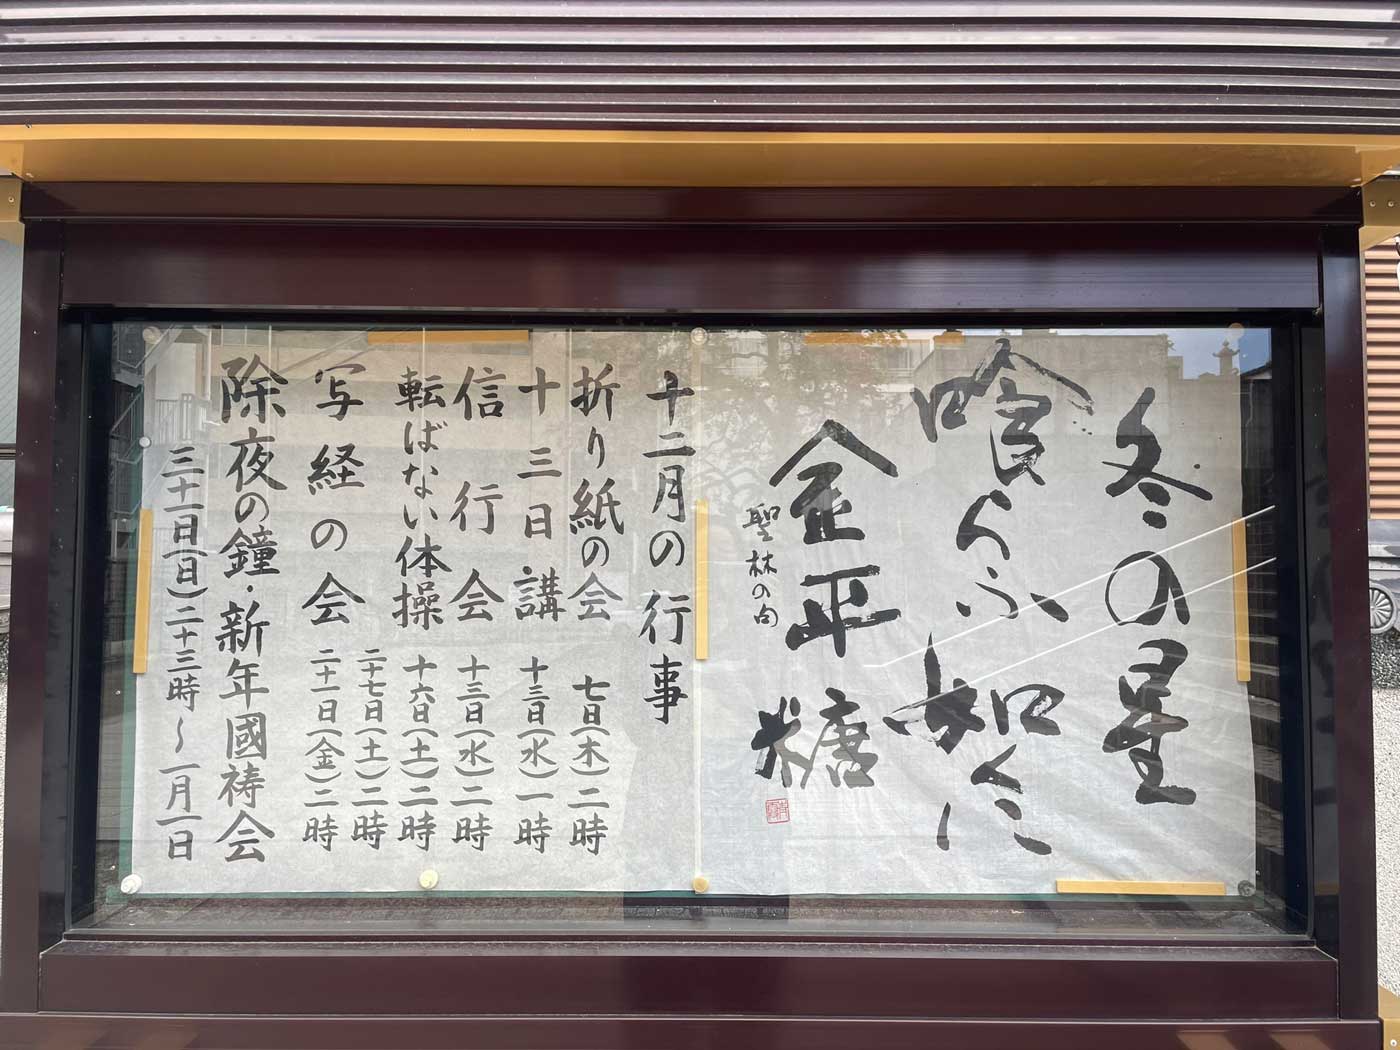 冬の星
喰らふ如くに
金平糖
聖林の句
十二月の行事
折り紙の会 七日(木)二時
十三日講 十三日(水)一時
信行会 十三日(水)二時
転ばない体操 十六日(土)二時
写経の会
(土)二時
(金)二時
除夜の鐘・新年國祷会
三十一日(日)二十三時~一月一日